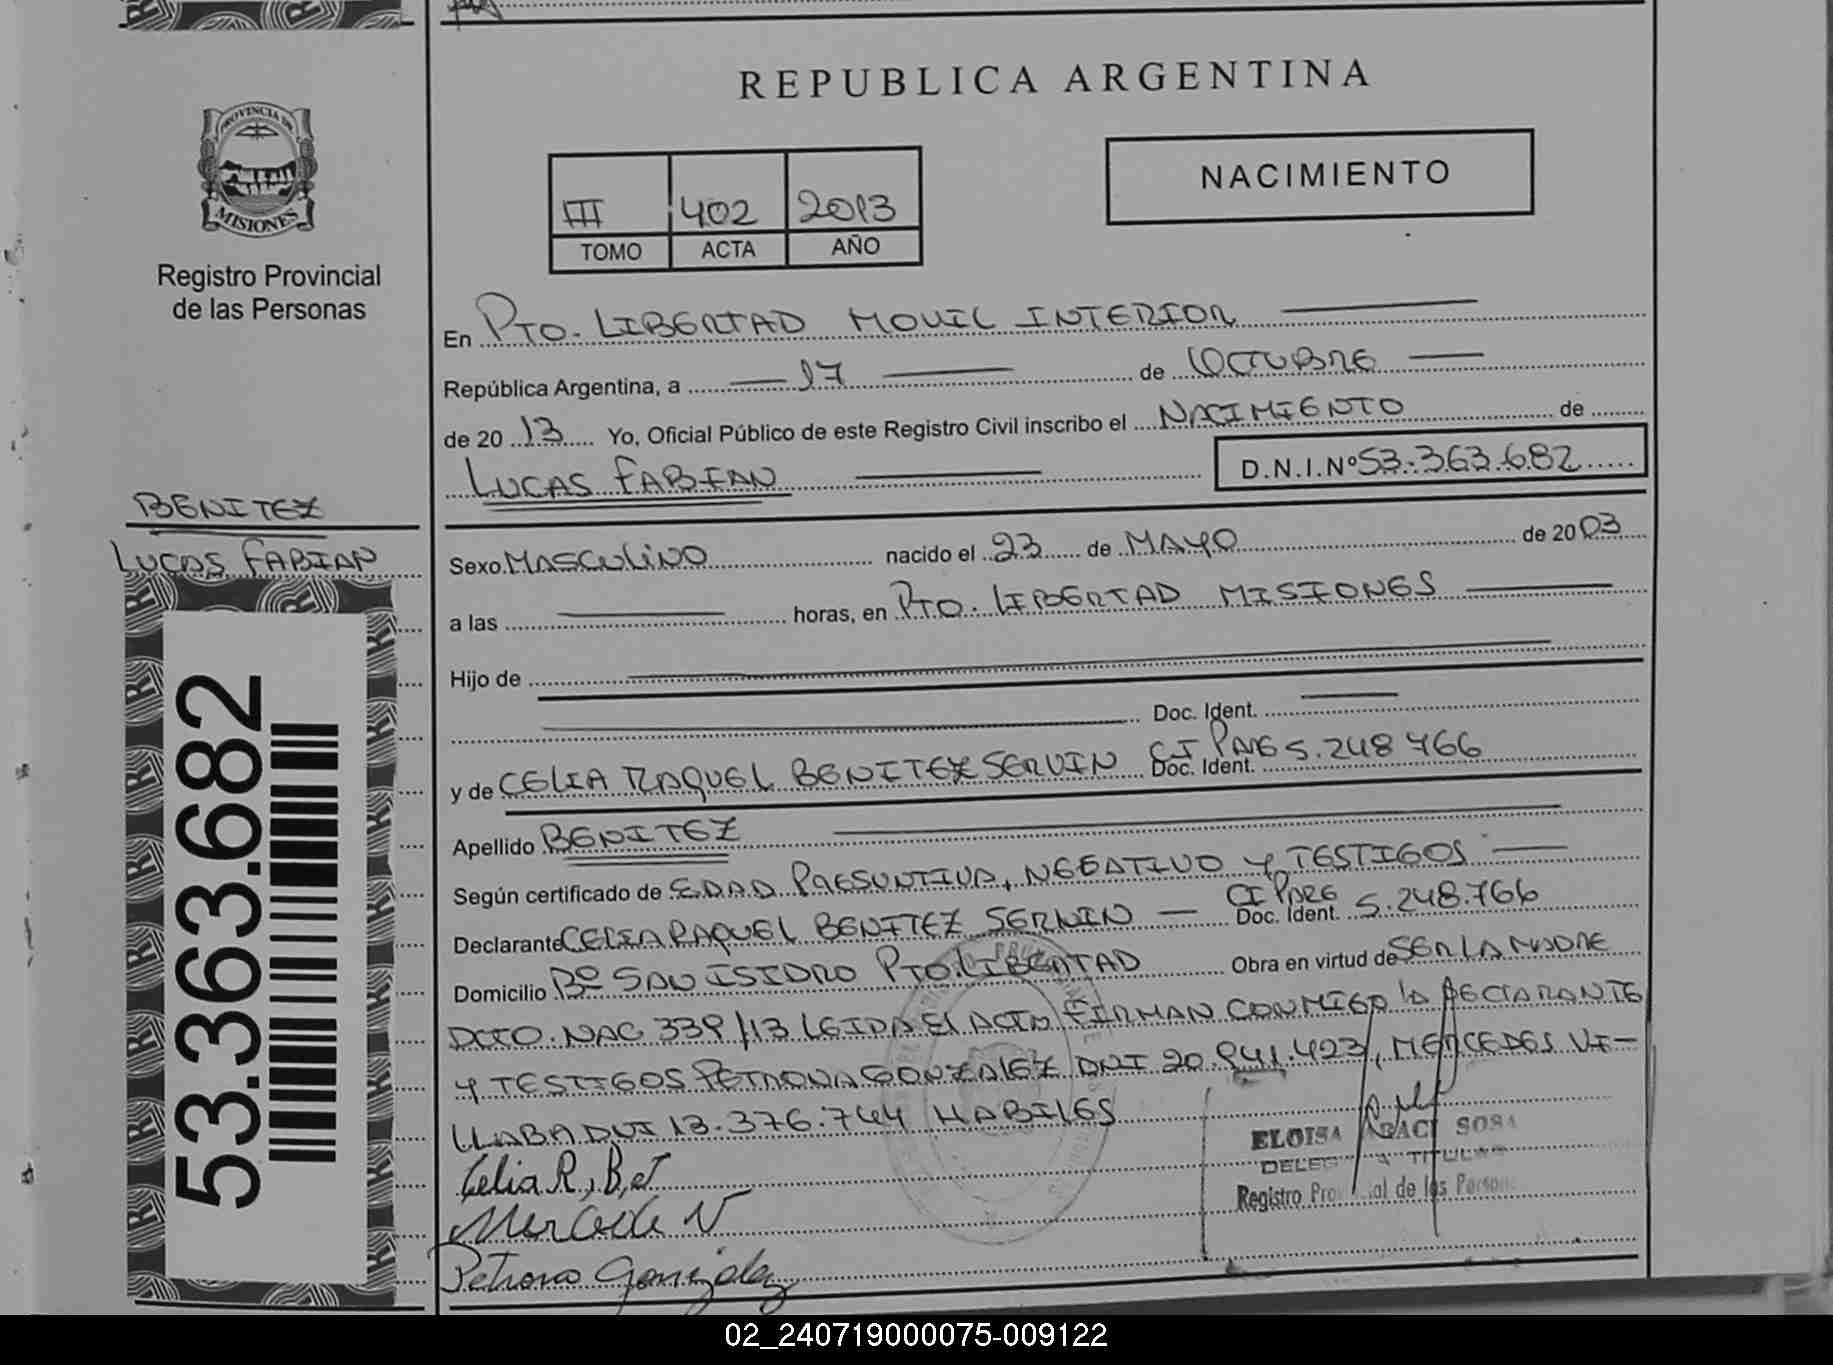 REPUBLICA ARGENTINA
PROVINCIA DE
MISIONES
Registro Provincial
de las Personas
III 402 2013
TOMO ACTA AÑO
NACIMIENTO
En PTO. LIBERTAD MOVIL INTERIOR
República Argentina, a 17 de OCTUBRE
de 20 13 Yo, Oficial Público de este Registro Civil inscribo el NACIMIENTO de
LUCAS FABIAN D.N.I.Nº 53.363.682
BENITEZ
LUCAS FABIAN
53.363.682
Sexo MASCULINO nacido el 23 de MAYO de 2003
a las horas, en PTO. LIBERTAD MISIONES
Hijo de
Doc. Ident.
y de CELIA RAQUEL BENITEZ SERVIN Doc. Ident. CI PARG 5.248 766
Apellido BENITEZ
Según certificado de EDAD PRESUNTIVA, NEGATIVO Y TESTIGOS
Declarante CELIA RAQUEL BENITEZ SERVIN Doc. Ident. CI PARG 5.248.766
Domicilio Bº SAN ISIDRO PTO. LIBERTAD Obra en virtud de SER LA MADRE
DCTO. NAC 339/13 LEIDA EL ACTA FIRMAN CONMIGO la DECLARANTE
Y TESTIGOS PETRONA GONZALEZ DNI 20.941.423, MERCEDES VI-
LLABA DNI 13.376.744 HABILES
Celia R, B,et
Petrona Gonzalez
ELOISA SOSA
TITULAR
Registro Provincial de las Personas
02_240719000075-009122